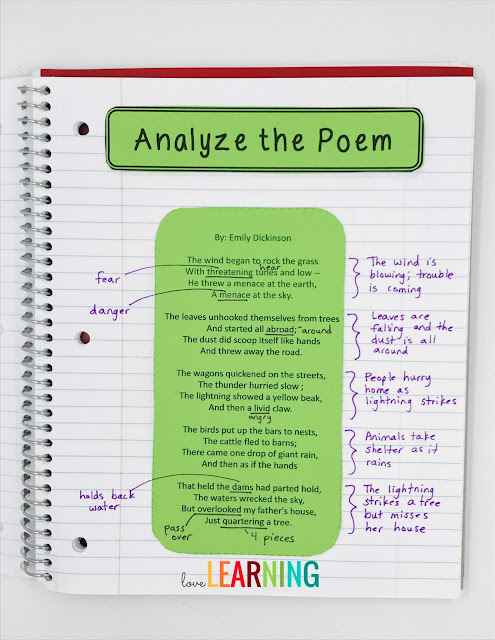 Analyze the Poem
By: Emily Dickinson
The wind began to rock the grass
hear
With threatening tunes and low --
He threw a menace at the earth,
A menace at the sky.
fear
danger
The wind is
blowing; trouble
is coming
The leaves unhooked themselves from trees
And started all abroad; - around
The dust did scoop itself like hands
And threw away the road.
Leaves are
falling and the
dust is all
around
The wagons quickened on the streets,
The thunder hurried slow ;
The lightning showed a yellow beak,
And then a livid claw.
angry
People hurry
home as
lightning strikes
The birds put up the bars to nests,
The cattle fled to barns;
There came one drop of giant rain,
And then as if the hands
Animals take
shelter as it
rains
That held the dams had parted hold,
The waters wrecked the sky,
But overlooked my father's house,
Just quartering a tree.
holds back
water
pass
over
4 pieces
The lightning
strikes a tree
but misses
her house
love LEARNING